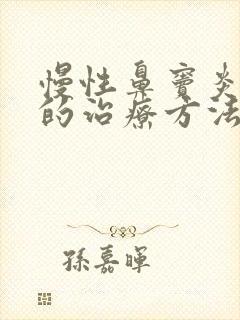 慢性鼻窦炎
的治疗方法
孫嘉暉